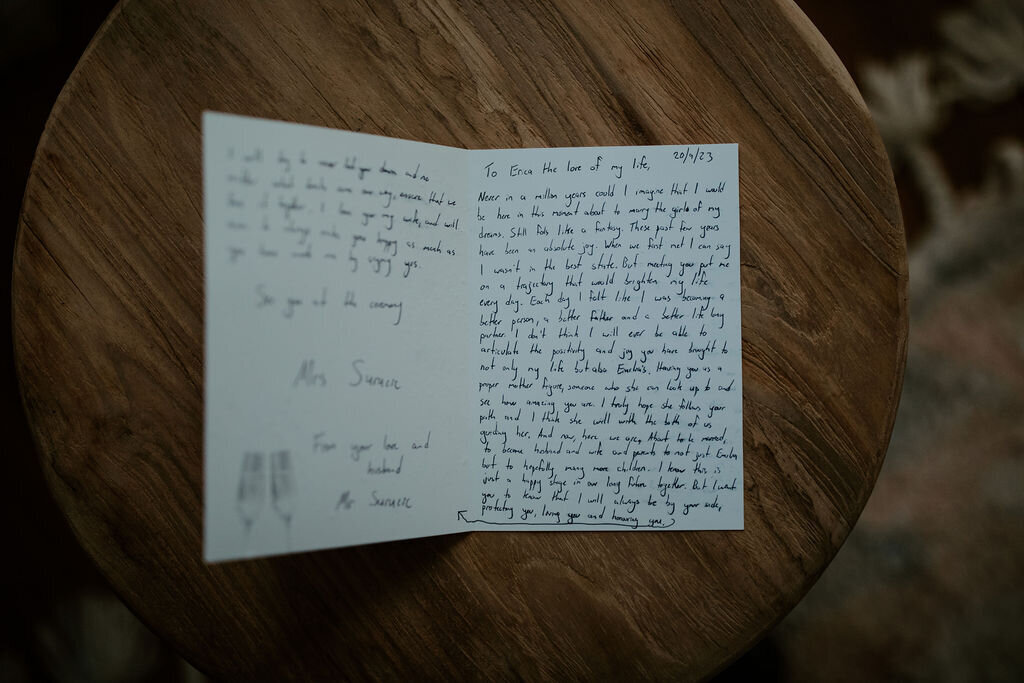 20/9/23
To Erica the love of my life,
Never in a million years could I imagine that I would
be here in this moment about to marry the girls of my
dreams. Still fels like a fantasy. These past few years
have been an absolute joy. When we first met I can say
I wasn't in the best state. But meeting you put me
on a trajectory that would brighten my life
every day. Each day I felt like I was becoming a
better person, a better father and a better life long
partner. I don't think I will ever be able to
articulate the positivity and joy you have brought to
not only my life but also Having you as a
proper mother figure, someone who she can look up to and
see how amazing you are. I truly hope she follows your
path and I think she will with the both of us
guiding her. And now, here we are, About to be married,
to become husband and wife and parents to not just
but to hopefully many more children. I know this is
just a happy stage in our long future together. But I want
you to know that I will always be by your side,
protecting you, loving you and honouring you.
I will try to never let you down and no
matter what our way, ensure that we
I love you my wife, and will
to always make you happy as much as
you have made me by saying yes.
See you at the ceremony
Mrs
From your love and
husband
Mr